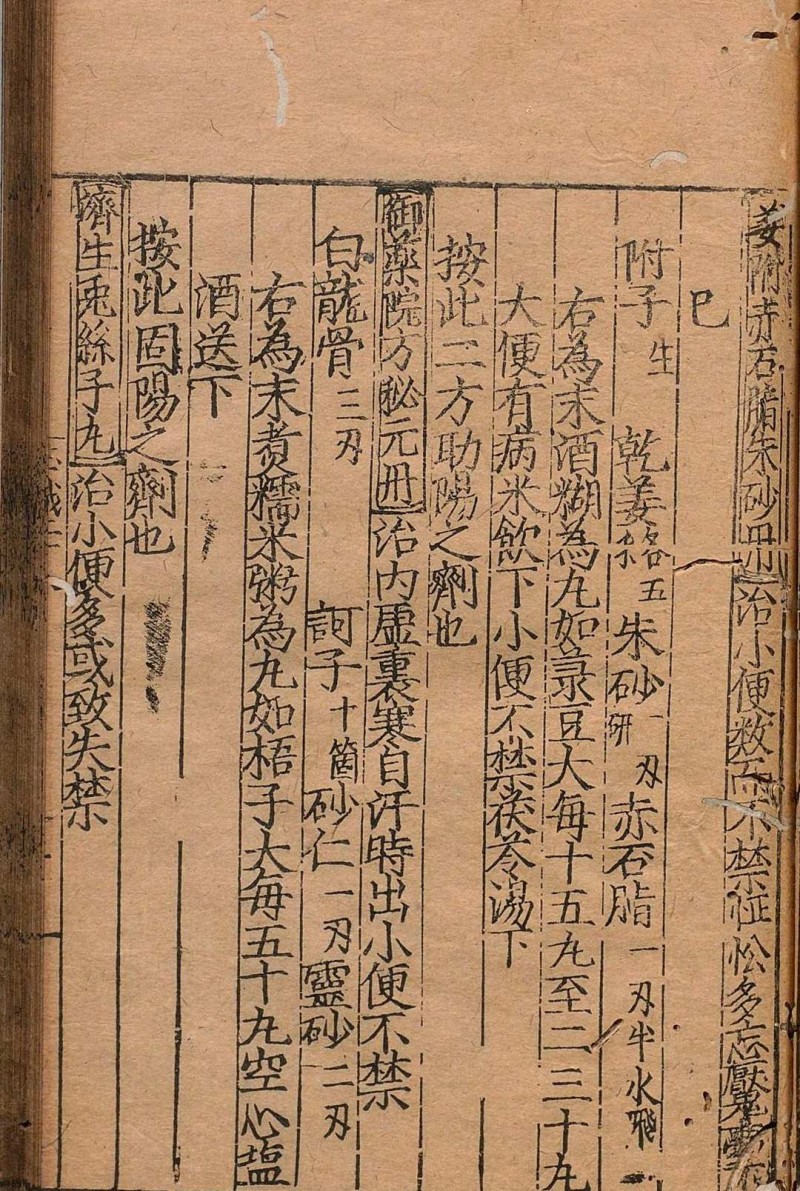 姜附赤石脂朱砂丹治小便数而不禁怔忪多忘魘夢不
已
附子生 乾姜各五 朱砂一刄研 赤石脂一刄半水飛
右為末酒糊為丸如菉豆大每十五丸至二三十丸
大便有病米飲下小便不禁茯苓湯下
按此二方助陽之劑也
御藥院方秘元丹治内虛裏寒自汗時出小便不禁
白龍骨三刄 訶子十箇 砂仁一刄 靈砂二刄
右為末煮糯米粥為丸如梧子大每五十丸空心塩
酒送下
按此固陽之劑也
濟生兎絲子丸治小便多或致失禁